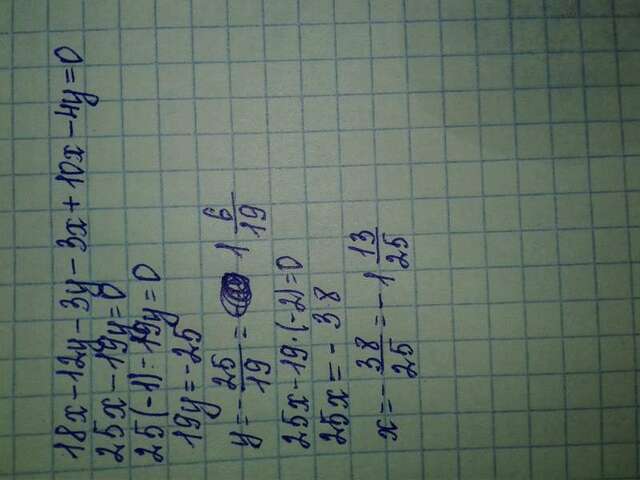 18x-12y-3y-3x+10x-4y=0
25x-19y=0
25(-1)-19y=0
19y=-25
y=-25/19= 1 6/19
25x-19·(-2)=0
25x=-38
x=-38/25=-1 13/25